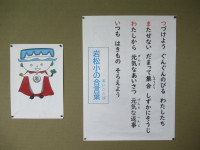 つづけよう ぐんぐんのびる わたしたち
またせない だまって集合 しずかにそうじ
わたしから 元気なあいさつ 元気な返事
いつも はきもの そろえよう
岩松小の合言葉